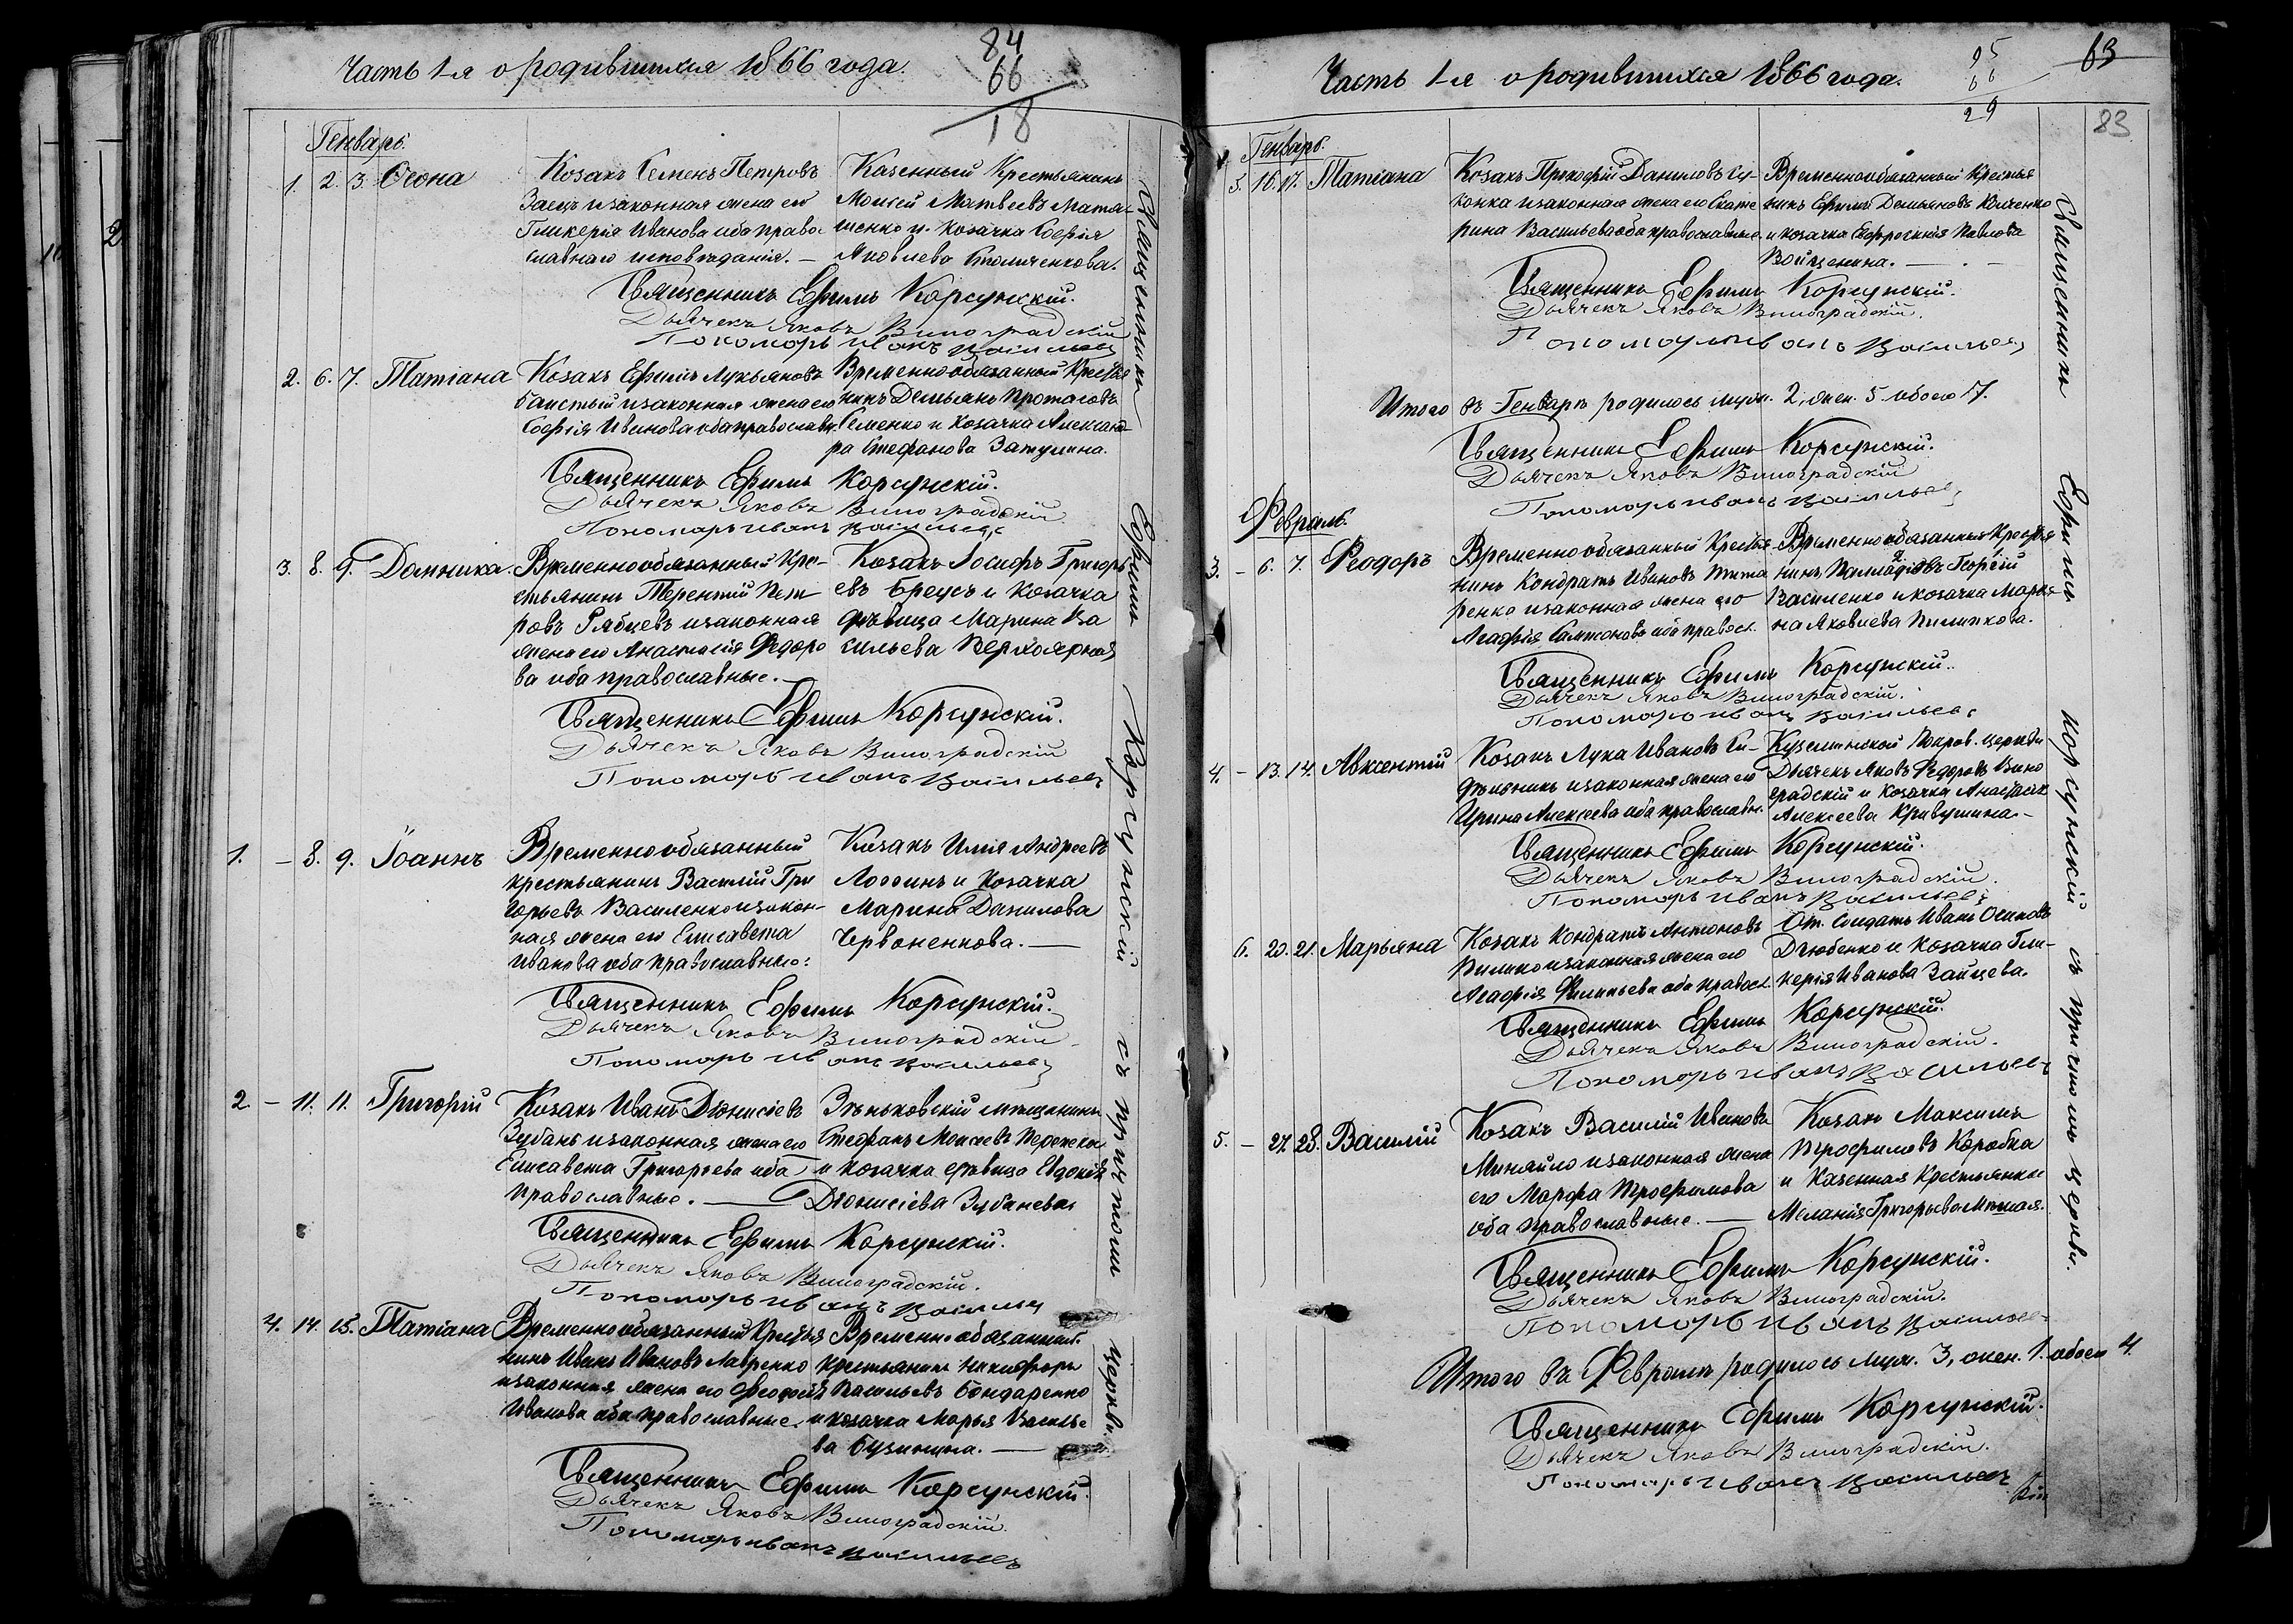 Часть 1-я о родившихся 1866 года.
84
66
18
Генварь.
1. 2. 3. Ѳеона
Козакъ Семенъ Петровъ
Заецъ и законная жена его
Гликерія Иванова оба право
славнаго исповѣданія. —
Казенный Крестьянинъ
Моисей Матвеевъ Мата-
шенко и козачка Софія
Яковлева
Священникъ Ефимъ Корсунскій.
Дьячекъ Яковъ Виноградскій
Пономарь Иванъ Васильевъ
2. 6. 7. Татіана
Козакъ Ефимъ Лукьяновъ
и законная жена его
Софія Иванова оба православн.
Временнообязанный Крестья
нинъ Демьянъ Протасовъ
Семенко и Козачка Александ-
ра Стефанова Затулина.
Священникъ Ефимъ Корсунскій.
Дьячекъ Яковъ Виноградскій
Пономарь Иванъ Васильевъ
3. 8. 9. Домника
Временнообязанный Кре-
стьянинъ Терентій Пет
ровъ Рябцевъ и законная
жена его Анастасія Федоро
ва оба православные. —
Козакъ Іосифъ Григорь
евъ Бреусъ и Козачка
дѣвица Марина Ва
сильева Верхоярная
Священникъ Ефимъ Корсунскій.
Дьячекъ Яковъ Виноградскій
Пономарь Иванъ Васильевъ
1. – 8. 9. Іоаннъ
Временнообязанный
крестьянинъ Василій Гри
горьевъ Василенко и закон-
ная жена его Елисавета
Иванова оба православные.
Козакъ Илія Андреевъ
Лоззинъ и Козачка
Марина Данилова
Червоненкова. —
Священникъ Ефимъ Корсунскій.
Дьячекъ Яковъ Виноградскій
Пономарь Иванъ Васильевъ
2. – 11. 11. Григорій
Козакъ Иванъ Діонисіевъ
Зубань и законная жена его
Елисавета Григорьева оба
православные. —
Зѣньковскій мѣщанинъ
Стефанъ Моисеевъ
и козачка дѣвица Евдокія
Діонисіева Зубанева
Священникъ Ефимъ Корсунскій.
Дьячекъ Яковъ Виноградскій.
Пономарь Иванъ Васильевъ
4. 14. 15. Татіана
Временнообязанный Крестья
нинъ Иванъ Ивановъ Лавренко
и законная жена его Феодосія
Иванова оба православные
Временно обязанный
крестьянинъ Никифоръ
Васильевъ Бондаренко
и козачка Марья Василье
ва Бузинина. —
Священникъ Ефимъ Корсунскій.
Дьячекъ Яковъ Виноградскій.
Пономарь Иванъ Васильевъ
Священникъ Ефимъ Корсунскій съ причтомъ церкви.
Часть 1-я о родившихся 1866 года.
95
66
29
63
83
Генварь.
5. 16. 17. Татіана
Козакъ Прокофій Даниловъ
и законная жена его Екате
рина Васильева оба православные.
Временнообязанный Крестья
нинъ Ефимъ Демьяновъ
и козачка Евфросинія Павлова
Войценина. —
Священникъ Ефимъ Корсунскій.
Дьячекъ Яковъ Виноградскій.
Пономарь Иванъ Васильевъ
Итого въ Генварѣ родилось муж. 2, жен. 5. обоего 7.
Священникъ Ефимъ Корсунскій.
Дьячекъ Яковъ Виноградскій
Пономарь Иванъ Васильевъ
Февраль.
3. – 6. 7. Феодоръ
Временнообязанный Крестья
нинъ Кондратъ Ивановъ Тита
ренко и законная жена его
Агафія Самсонова оба правосл.
Временнообязанный Крестья
нинъ Палладіевъ Георгій
Василенко и козачка Марья
на Яковлева Пилипкова.
Священникъ Ефимъ Корсунскій.
Дьячекъ Яковъ Виноградскій.
Пономарь Иванъ Васильевъ
4. – 13. 14. Авксентій
Козакъ Лука Ивановъ Си-
дѣльникъ и законная жена его
Ирина Алексеева оба православн.
Куземинской Покров. церкви
Дьячекъ Яковъ Федоровъ Вино
градскій и Козачка Анастасія
Алексеева Кривушина. —
Священникъ Ефимъ Корсунскій.
Дьячекъ Яковъ Виноградскій.
Пономарь Иванъ Васильевъ
6. 20. 21. Марьяна
Козакъ Кондратъ Антоновъ
и законная жена его
Агафія Филипьева оба правосл.
От. Солдатъ Иванъ Осиповъ
Дзюбенко и Козачка Гли-
керія Иванова Зайцева.
Священникъ Ефимъ Корсунскій.
Дьячекъ Яковъ Виноградскій.
Пономарь Иванъ Васильевъ
5. – 27. 28. Василій
Козакъ Василій Ивановъ
Минайло и законная жена
его Марфа Трофимова
оба православные. —
Козакъ Максимъ
Трофимовъ Коробка
и Казенная Крестьянка
Меланія Григорьева
Священникъ Ефимъ Корсунскій.
Дьячекъ Яковъ Виноградскій.
Пономарь Иванъ Васильевъ
Итого въ Февралѣ родилось муж. 3, жен. 1. обоего 4.
Священникъ Ефимъ Корсунскій.
Дьячекъ Яковъ Виноградскій.
Пономарь Иванъ Васильевъ
Священникъ Ефимъ Корсунскій съ причтомъ церкви.